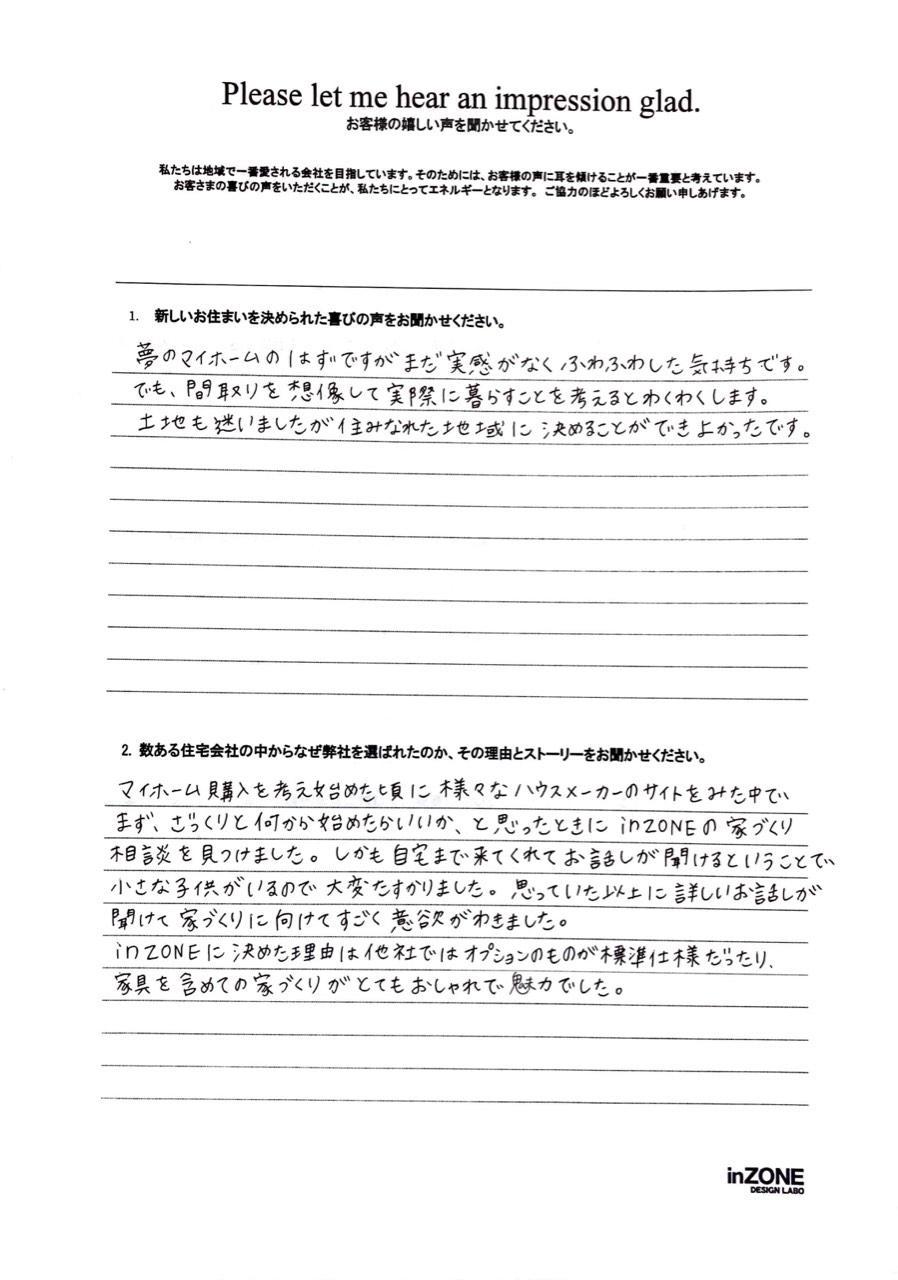 Please let me hear an impression glad.
お客様の嬉しい声を聞かせてください。
私たちは地域で一番愛される会社を目指しています。そのためには、お客様の声に耳を傾けることが一番重要と考えています。
お客さまの喜びの声をいただくことが、私たちにとってエネルギーとなります。ご協力のほどよろしくお願い申しあげます。
1. 新しいお住まいを決められた喜びの声をお聞かせください。
夢のマイホームのはずですがまだ実感がなくふわふわした気持ちです。
でも、間取りを想像して実際に暮らすことを考えるとわくわくします。
土地も迷いましたが住みなれた地域に決めることができよかったです。
2. 数ある住宅会社の中からなぜ弊社を選ばれたのか、その理由とストーリーをお聞かせください。
マイホーム購入を考え始めた頃に様々なハウスメーカーのサイトをみた中で、
まず、ざっくりと何から始めたらいいか、と思ったときにinZONEの家づくり
相談を見つけました。しかも自宅まで来てくれてお話しが聞けるということで、
小さな子供がいるので大変たすかりました。思っていた以上に詳しいお話しが
聞けて家づくりに向けてすごく意欲がわきました。
inZONEに決めた理由は他社ではオプションのものが標準仕様だったり、
家具を含めての家づくりがとてもおしゃれで魅力でした。
inZONE
DESIGN LABO